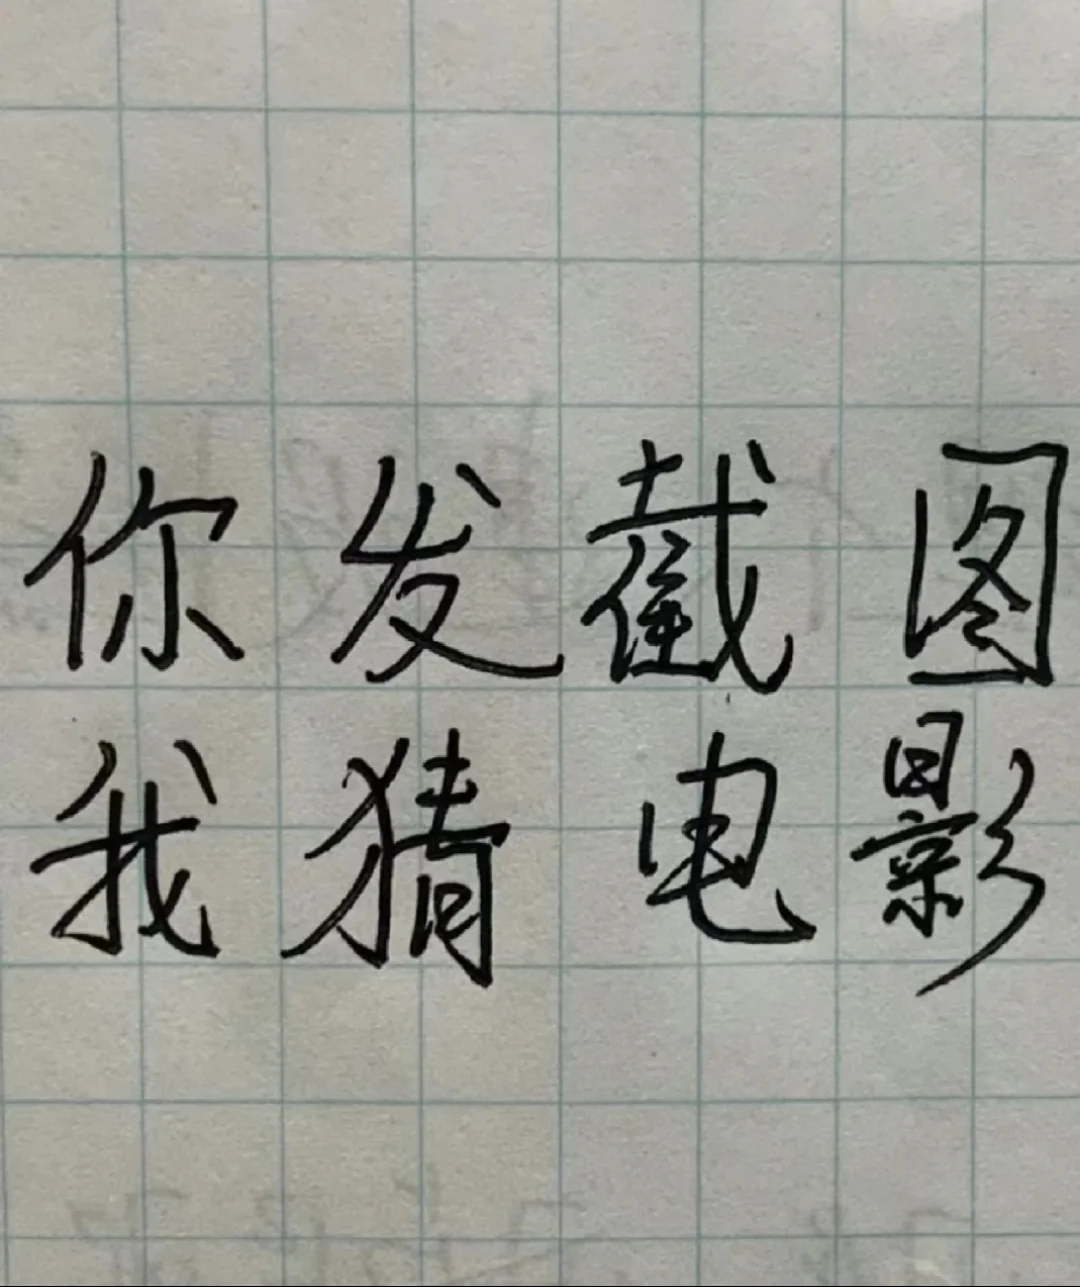 你发截图
我猜电影